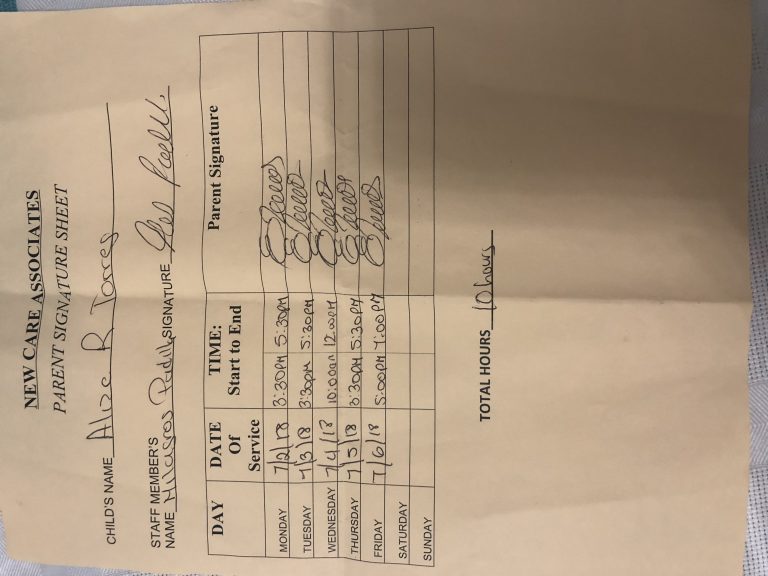 NEW CARE ASSOCIATES
PARENT SIGNATURE SHEET
CHILD'S NAME Alize R Torres
STAFF MEMBER'S
NAME Milagros Padilla SIGNATURE
DAY DATE Of Service TIME: Start to End Parent Signature
MONDAY 7/2/18 3:30PM 5:30PM
TUESDAY 7/3/18 3:30PM 5:30PM
WEDNESDAY 7/4/18 10:00am 12:00PM
THURSDAY 7/5/18 3:30PM 5:30PM
FRIDAY 7/6/18 5:00PM 7:00PM
SATURDAY
SUNDAY
TOTAL HOURS 10 hours